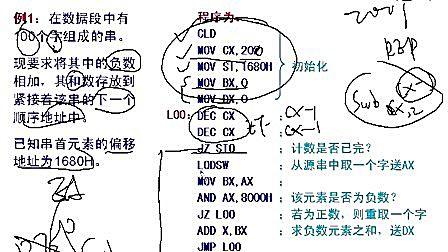 例1：在数据段中有
100个字组成的串。
现要求将其中的负数
相加，其和数存放到
紧接着该串的下一个
顺序地址中。
已知串首元素的偏移
地址为1680H。
程序为
CLD
MOV CX,200
MOV SI,1680H
初始化
MOV BX,0
MOV DX,0
L00: DEC CX
CX-1
DEC CX
CX-1
JZ ST0 ；计数是否已完？
LODSW ；从源串中取一个字送AX
MOV BX,AX
AND AX,8000H ；该元素是否为负数？
JZ L00 ；若为正数，则重取一个字
ADD X,BX ；求负数元素之和，送DX
JMP L00
Sub
CX,2